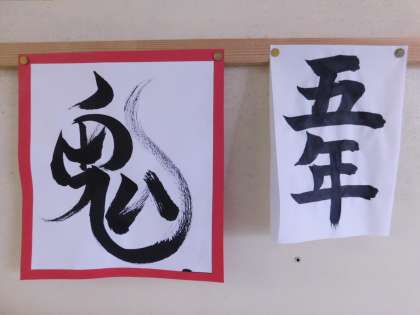 鬼
五年